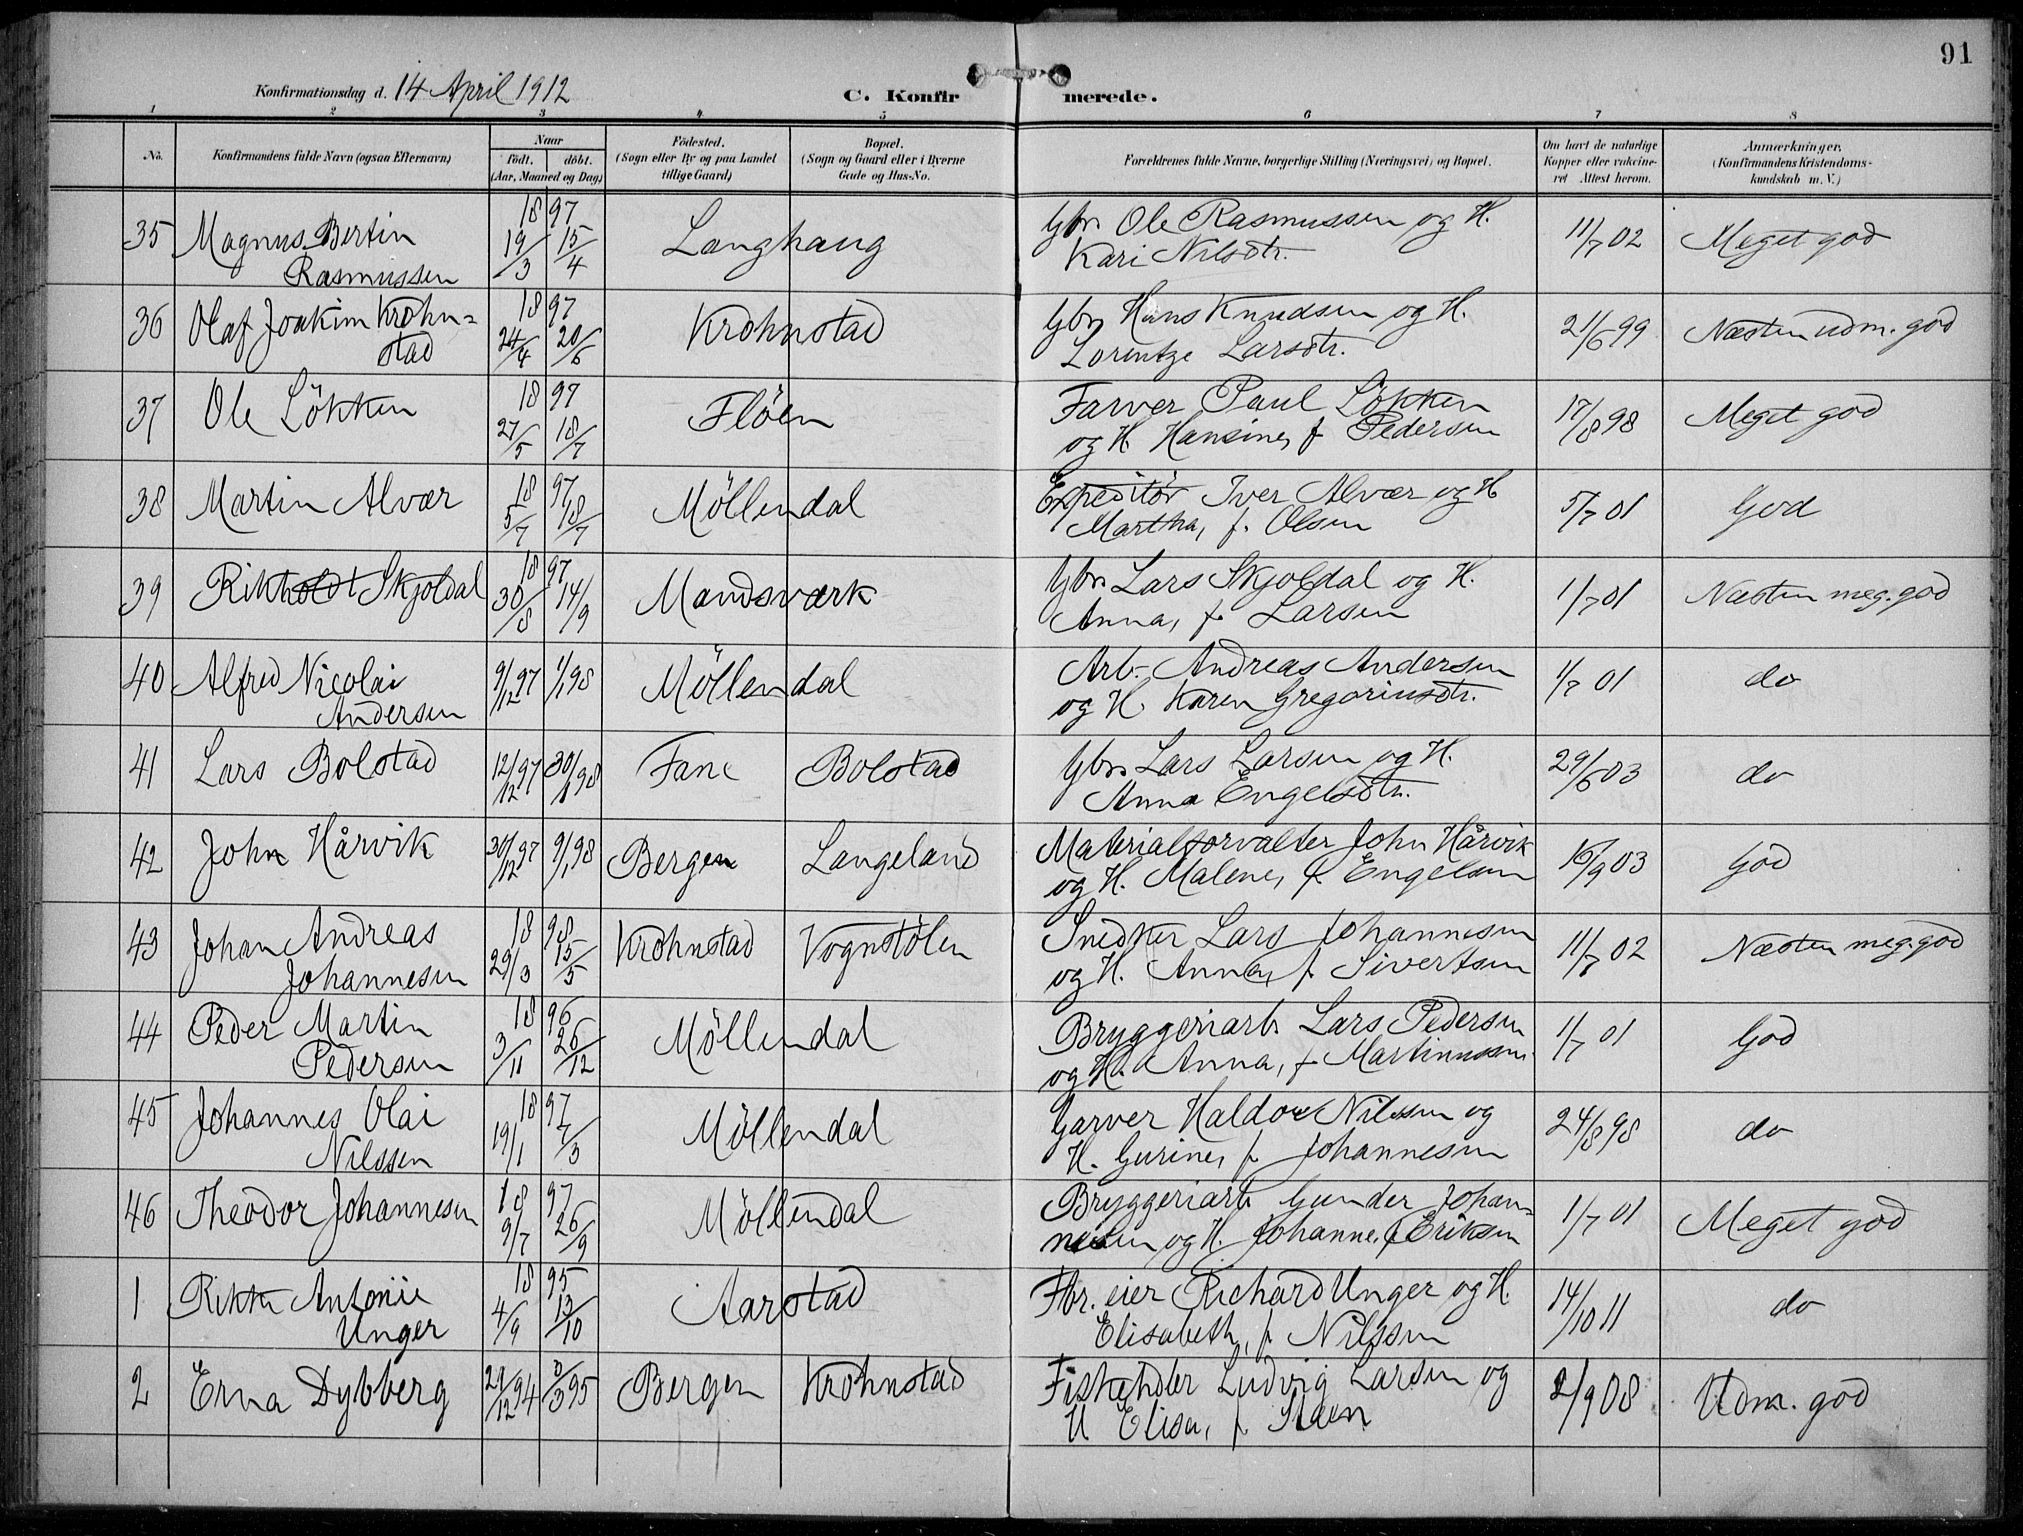 91
Konfirmationsdag d. 14 April 1912
C. Konfirmerede.
1 2 3 4 5 6 7 8
No. Konfirmandens fulde Navn (ogsaa Efternavn) Naar født. døbt. (Aar, Maaned og Dag) Fødested. (Sogn eller By og paa Landet tillige Gaard) Bopæl. (Sogn og Gaard eller i Byerne Gade og Hus-No. Forældrenes fulde Navne, borgerlige Stilling (Næringsvei) og Bopæl. Om havt de naturlige Kopper eller vakcineret Attest herom. Anmærkninger. (Konfirmandens Kristendomskundskab m. V.)
35 Magnus Bertin Rasmussen 1897 19/3 15/4 Langhaug Gbr. Ole Rasmussen og H. Kari Nilsdtr. 11/7 02 Meget god
36 Olaf Joakim Krohnstad 1897 24/4 20/6 Krohnstad Gbr. Hans Knudsen og H. Lorentze Larsdtr. 21/6 99 Næsten udm. god
37 Ole Lökken 1897 27/5 18/7 Flöen Farver Paul Lökken og H. Hansine, f. Pedersen 17/8 98 Meget god
38 Martin Alvær 1897 5/7 18/7 Möllendal Expeditör Iver Alvær og H Martha, f. Olsen 5/7 01 God
39 Rikholdt Skjoldal 1897 30/8 14/9 Mandsværk Gbr. Lars Skjoldal og H. Anna, f. Larsen 1/7 01 Næsten meg. god
40 Alfred Nicolai Andersen 9/12 97 1/1 98 Möllendal Arb. Andreas Andersen og H. Karen Gregoriusdtr. 1/7 01 do
41 Lars Bolstad 12/12 97 30/1 98 Fane Bolstad Gbr. Lars Larsen og H. Anna Engelsdtr. 29/6 03 do
42 John Hårvik 30/12 97 9/1 98 Bergen Langeland Materialforvalter John Hårvik og H. Malene, f. Engelsen 16/9 03 God
43 Johan Andreas Johannesen 1898 29/3 15/5 Krohnstad Vognstölen Snedker Lars Johannesen og H. Anna, f. Sivertsen 11/7 02 Næsten meg. god
44 Peder Martin Pedersen 1896 3/11 26/12 Möllendal Bryggeriarb. Lars Pedersen og H. Anna, f. Martinussen. 1/7 01 God
45 Johannes Olai Nilssen 1897 19/1 7/3 Möllendal Garver Haldor Nilssen og H. Gurine, f. Johannesen 24/8 98 do
46 Theodor Johannesen 1897 9/7 26/9 Möllendal Bryggeriarb. Gunder Johannesen og H. Johanne, f. Eriksen 1/7 01 Meget god
1 Rikke Antonie Unger 1895 4/9 13/10 Aarstad Fbr. eier Richard Unger og H. Elisabeth, f. Nilssen 14/10 11 do
2 Erna Dybberg 29/12 94 3/3 95 Bergen Krohnstad Fiskehdler Ludvig Larsen og H Elisa, f. 2/9 08 Udm. god